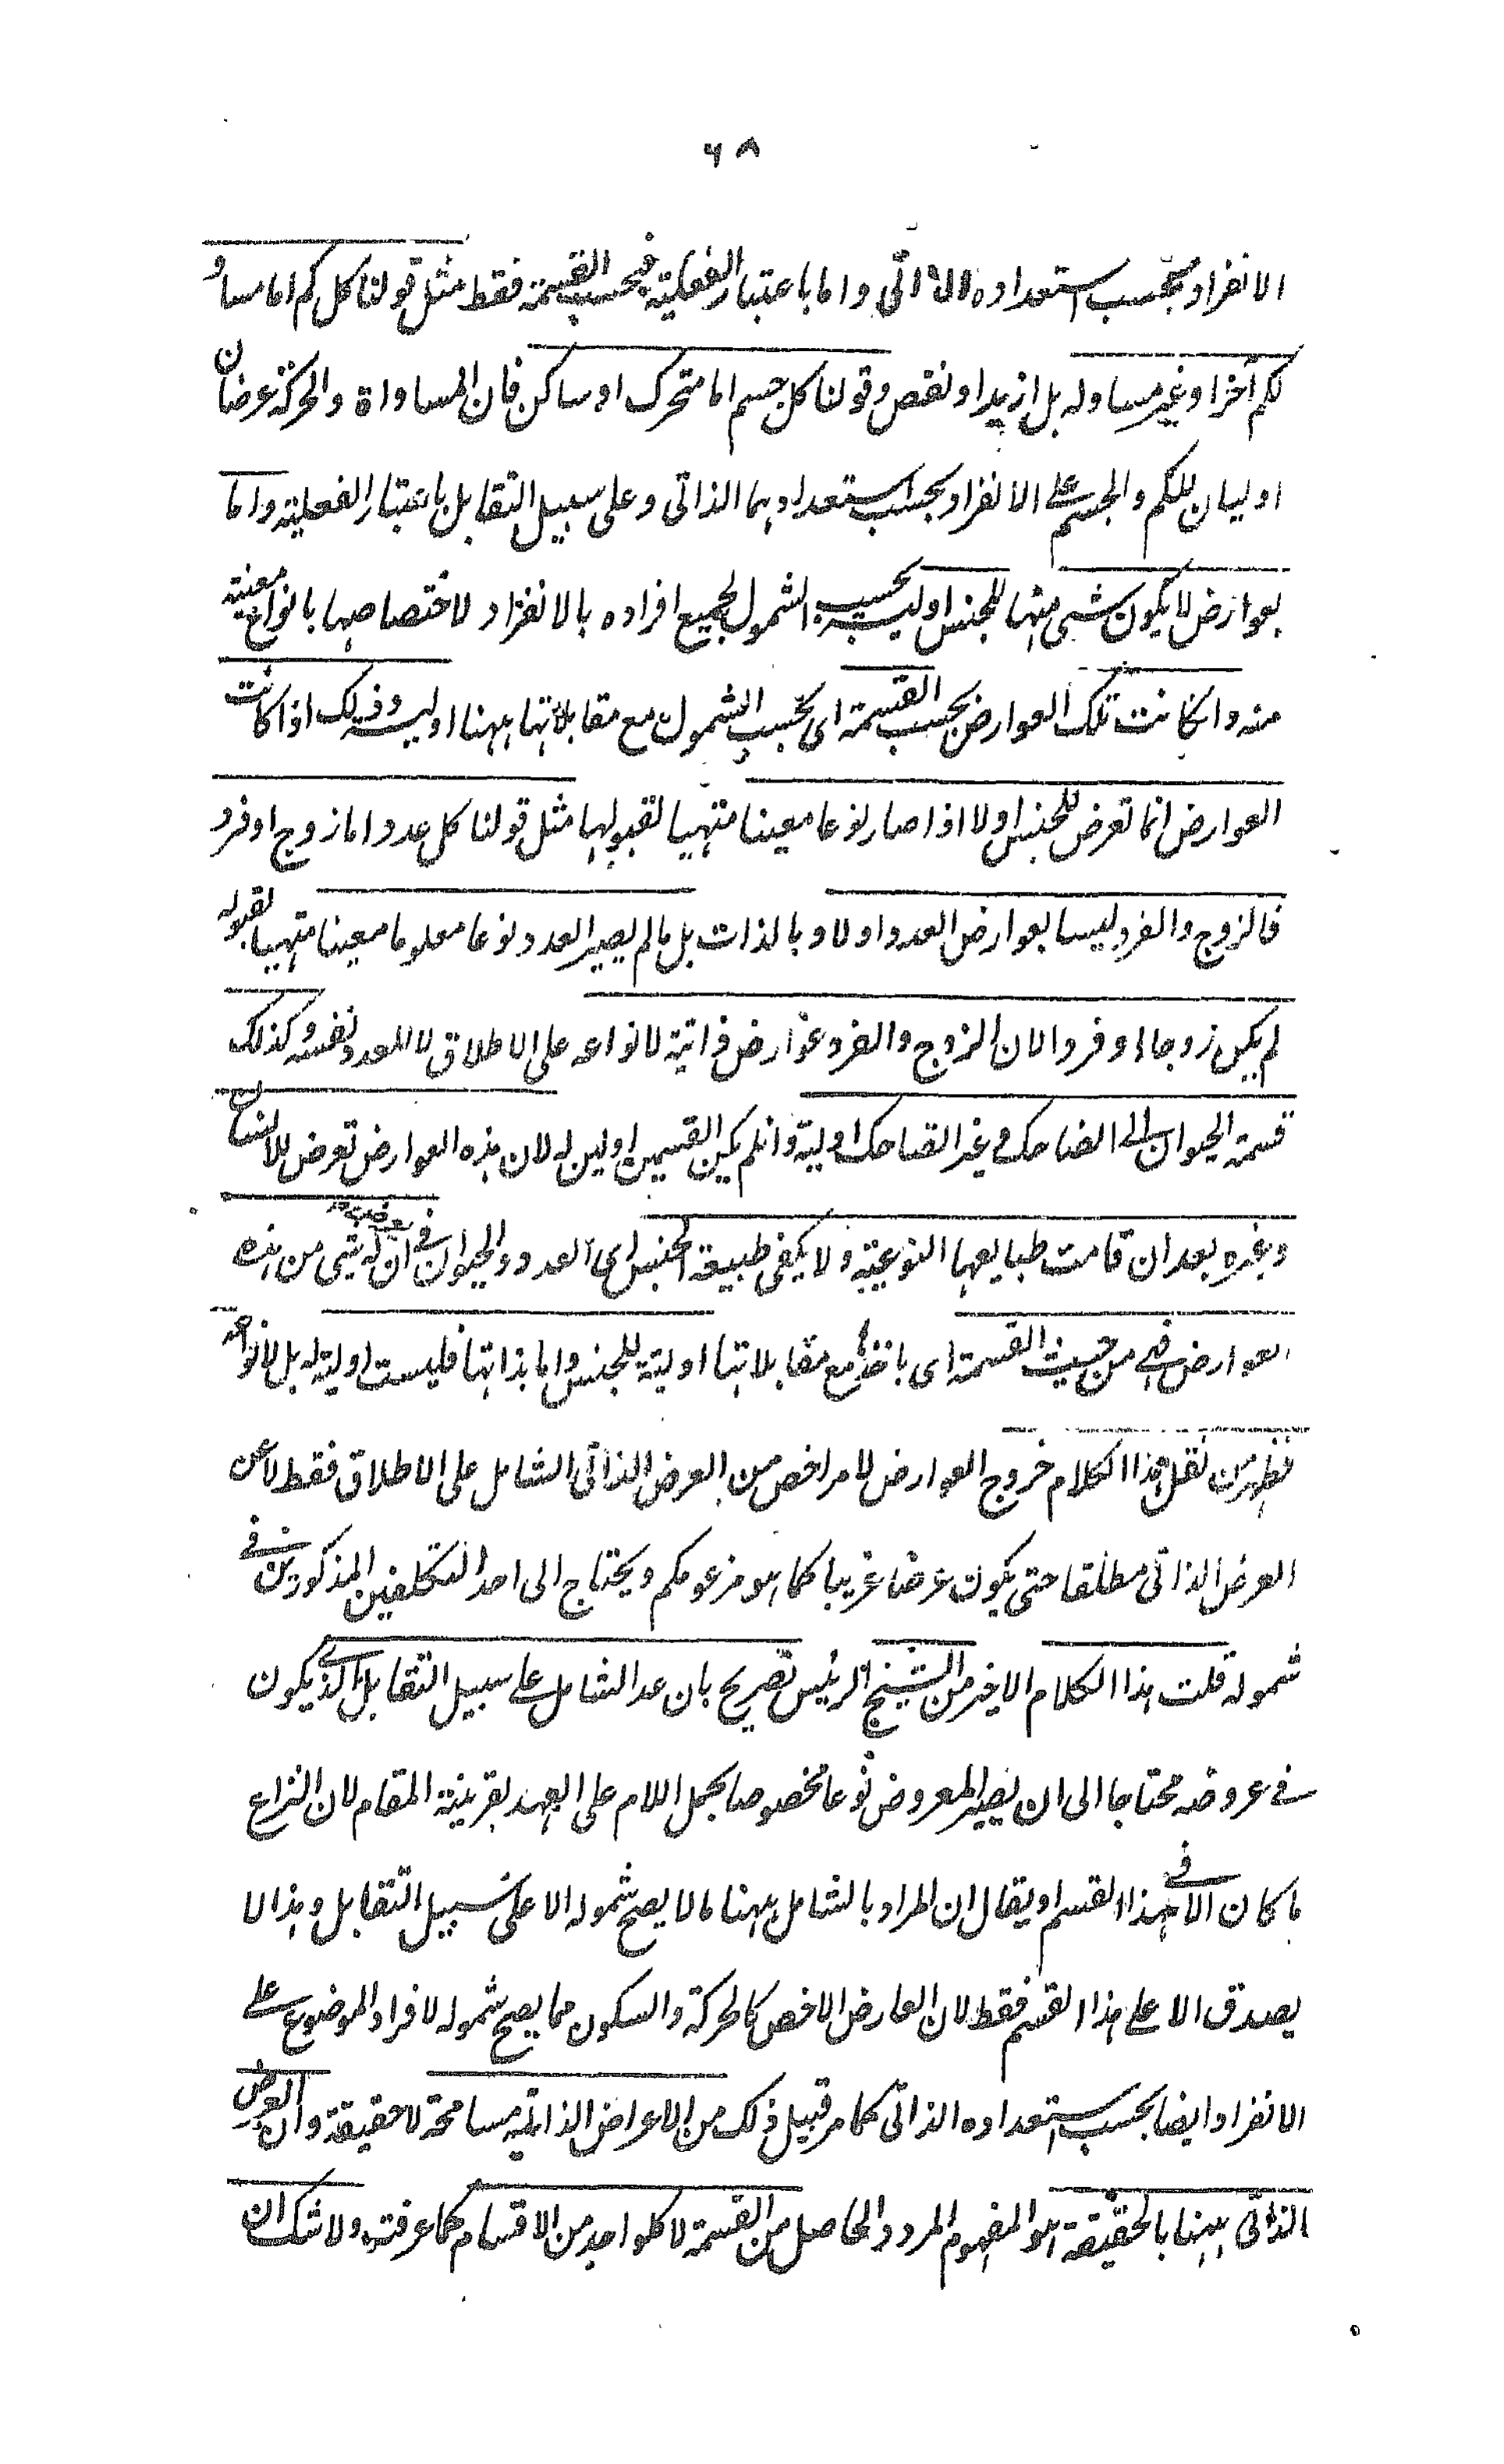 ٦٨
الانفراد بحسب استعداده الذاتى واما باعتبار الفعلية فبحسب القسمة فقط مثل قولنا كل كم اما مساو
لكم آخر او غير مساو له بل ازيد او نقص وقولنا كل جسم اما متحرك او ساكن فان المساواة والحركة عرضان
اوليان للكم والجسم على الانفراد بحسب استعدادهما الذاتى وعلى سبيل التقابل باعتبار الفعلية واما
بعوارض لا يكون شىء منها للجنس اولية بحسب الشمول لجميع افراده بالانفراد لاختصاصها بانواع معينة
منه وان كانت تلك العوارض بحسب القسمة اى بحسب الشمول مع مقابلاتها ههنا اولية وذلك اذا كانت
العوارض انما تعرض للجنس اولا اذا صار نوعا معينا متهيا لقبولها مثل قولنا كل عدد اما زوج او فرد
فالزوج والفرد ليسا بعوارض العدد اولا وبالذات بل ما لم يصير العدد نوعا معلوما معينا متهيا لقبوله
لم يكن زوجا او فردا لان الزوج والفرد عوارض ذاتية لانواعه على الاطلاق لا للعدد نفسه وكذلك
قسمة الحيوان الى الضاحك وغير الضاحك اولية وان لم يكن القسمين اولين له لان هذه العوارض تعرض للانسان
وغيره بعد ان قامت طبايعها النوعية ولا يكفى طبيعة الجنس اى العدد والحيوان فى ان له شىء من هذه
العوارض فهى من حيث القسمة اى باخذها مع مقابلاتها اولية للجنس واما بذاتها فليست اولية له بل لانواعه
فظهر من نقل هذا الكلام خروج العوارض لامر اخص من العرض الذاتى الشامل على الاطلاق فقط لا عن
العرض الذاتى مطلقا حتى يكون عرضا غريبا كما هو مزعومكم ويحتاج الى احد التكلفين المذكورين فى
شموله قلت هذا الكلام الاخير من الشيخ الرئيس تصريح بان عد الشامل على سبيل التقابل الذى يكون
فى عروضه محتاجا الى ان يصير المعروض نوعا مخصوصا بحمل اللام على العهد بقرينة المقام لان النزاع
ما كان الا فى هذا القسم او يقال ان المراد بالشامل ههنا ما لا يصح شموله الا على سبيل التقابل وهذا لا
يصدق الا على هذا القسم فقط لان العارض الاخص كالحركة والسكون مما يصح شموله لافراد الموضوع على
الانفراد ايضا بحسب استعداده الذاتى كما مر قبيل ذلك من الاعراض الذاتية مسامحة لا حقيقة وان العرض
الذاتى ههنا بالحقيقة هو المفهوم المردد الحاصل من القسمة لا كلواحد من الاقسام كما عرفته ولا شك ان